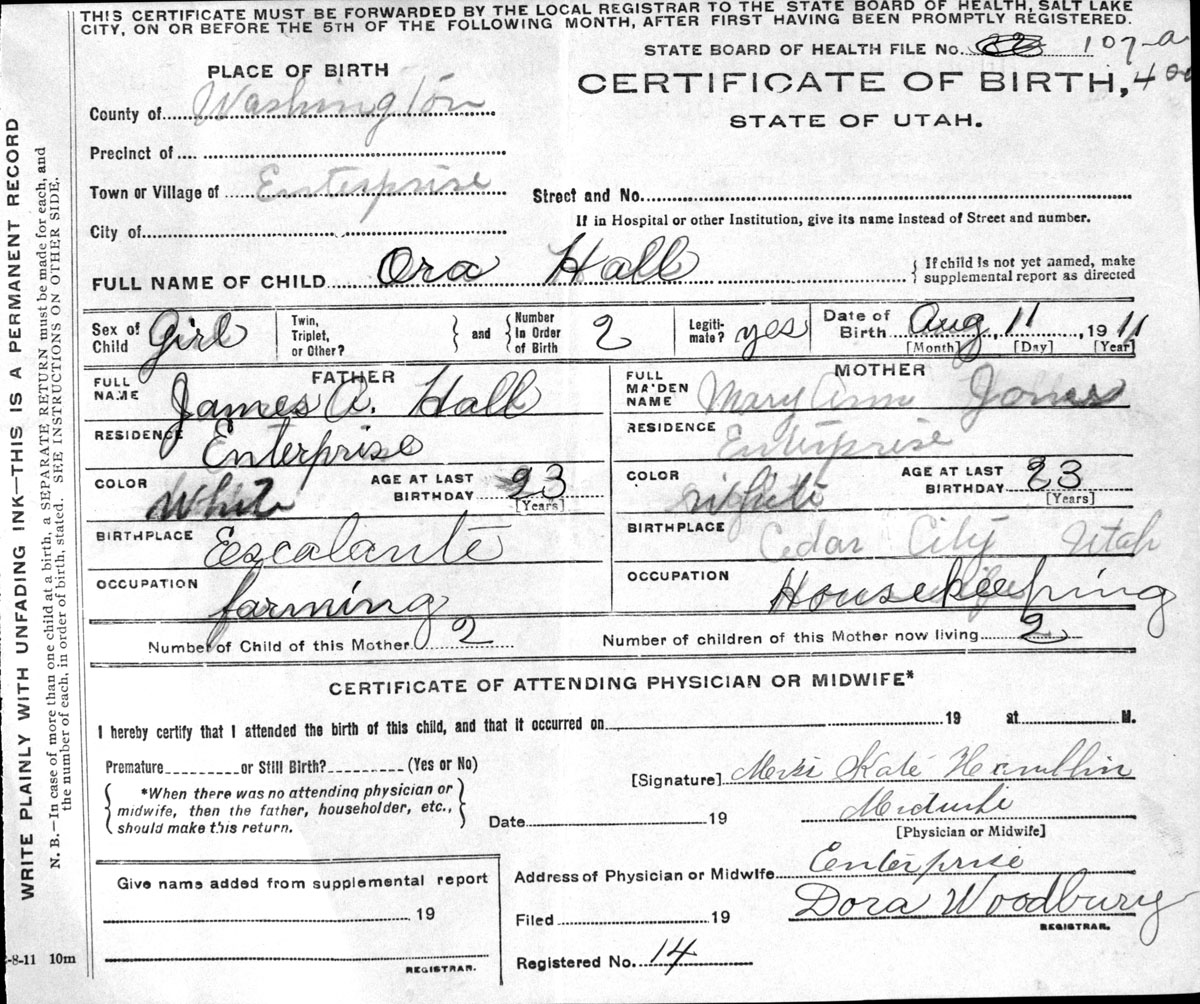 THIS CERTIFICATE MUST BE FORWARDED BY THE LOCAL REGISTRAR TO THE STATE BOARD OF HEALTH, SALT LAKE
CITY, ON OR BEFORE THE 5TH OF THE FOLLOWING MONTH, AFTER FIRST HAVING BEEN PROMPTLY REGISTERED.
STATE BOARD OF HEALTH FILE No. 107-a
PLACE OF BIRTH
CERTIFICATE OF BIRTH, 400
STATE OF UTAH.
County of Washington
Precinct of
Town or Village of Enterprise
Street and No.
If in Hospital or other Institution, give its name instead of Street and number.
City of
FULL NAME OF CHILD Ora Hall
{ If child is not yet named, make
supplemental report as directed
Sex of Child Girl
Twin, Triplet, or Other? } and { Number In Order of Birth 2
Legiti-mate? yes
Date of Birth Aug 11, 1911
[Month] [Day] [Year]
FATHER
FULL NAME James A. Hall
RESIDENCE Enterprise
COLOR White
AGE AT LAST BIRTHDAY 23
[Years]
BIRTHPLACE Escalante
OCCUPATION farming
MOTHER
FULL MAIDEN NAME Mary Ann Jones
RESIDENCE Enterprise
COLOR white
AGE AT LAST BIRTHDAY 23
[Years]
BIRTHPLACE Cedar City Utah
OCCUPATION Housekeeping
Number of Child of this Mother 2
Number of children of this Mother now living 2
CERTIFICATE OF ATTENDING PHYSICIAN OR MIDWIFE*
I hereby certify that I attended the birth of this child, and that it occurred on 19 at M.
Premature or Still Birth? (Yes or No)
{ *When there was no attending physician or
midwife, then the father, householder, etc.,
should make this return. }
[Signature] Kate
Date 19
Midwife
[Physician or Midwife]
Give name added from supplemental report
19
REGISTRAR.
Address of Physician or Midwife Enterprise
Filed 19
Dora Woodbury
REGISTRAR.
Registered No. 14
WRITE PLAINLY WITH UNFADING INK—THIS IS A PERMANENT RECORD
N. B.—In case of more than one child at a birth, a SEPARATE RETURN must be made for each, and
the number of each, in order of birth, stated. SEE INSTRUCTIONS ON OTHER SIDE.
-8-11 10m